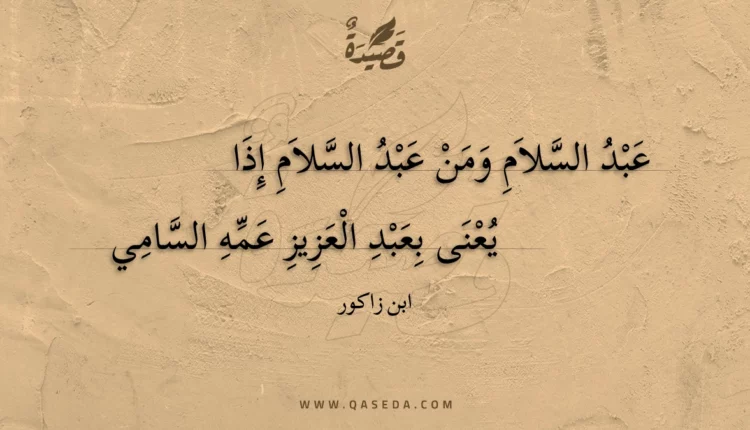 قَصِيْدَةٌ
عَبْدُ السَّلاَمِ وَمَنْ عَبْدُ السَّلاَمِ إِذَا
يُعْنَى بِعَبْدِ الْعَزِيزِ عَمِّهِ السَّامِي
ابن زاكور
WWW.QASEDA.COM